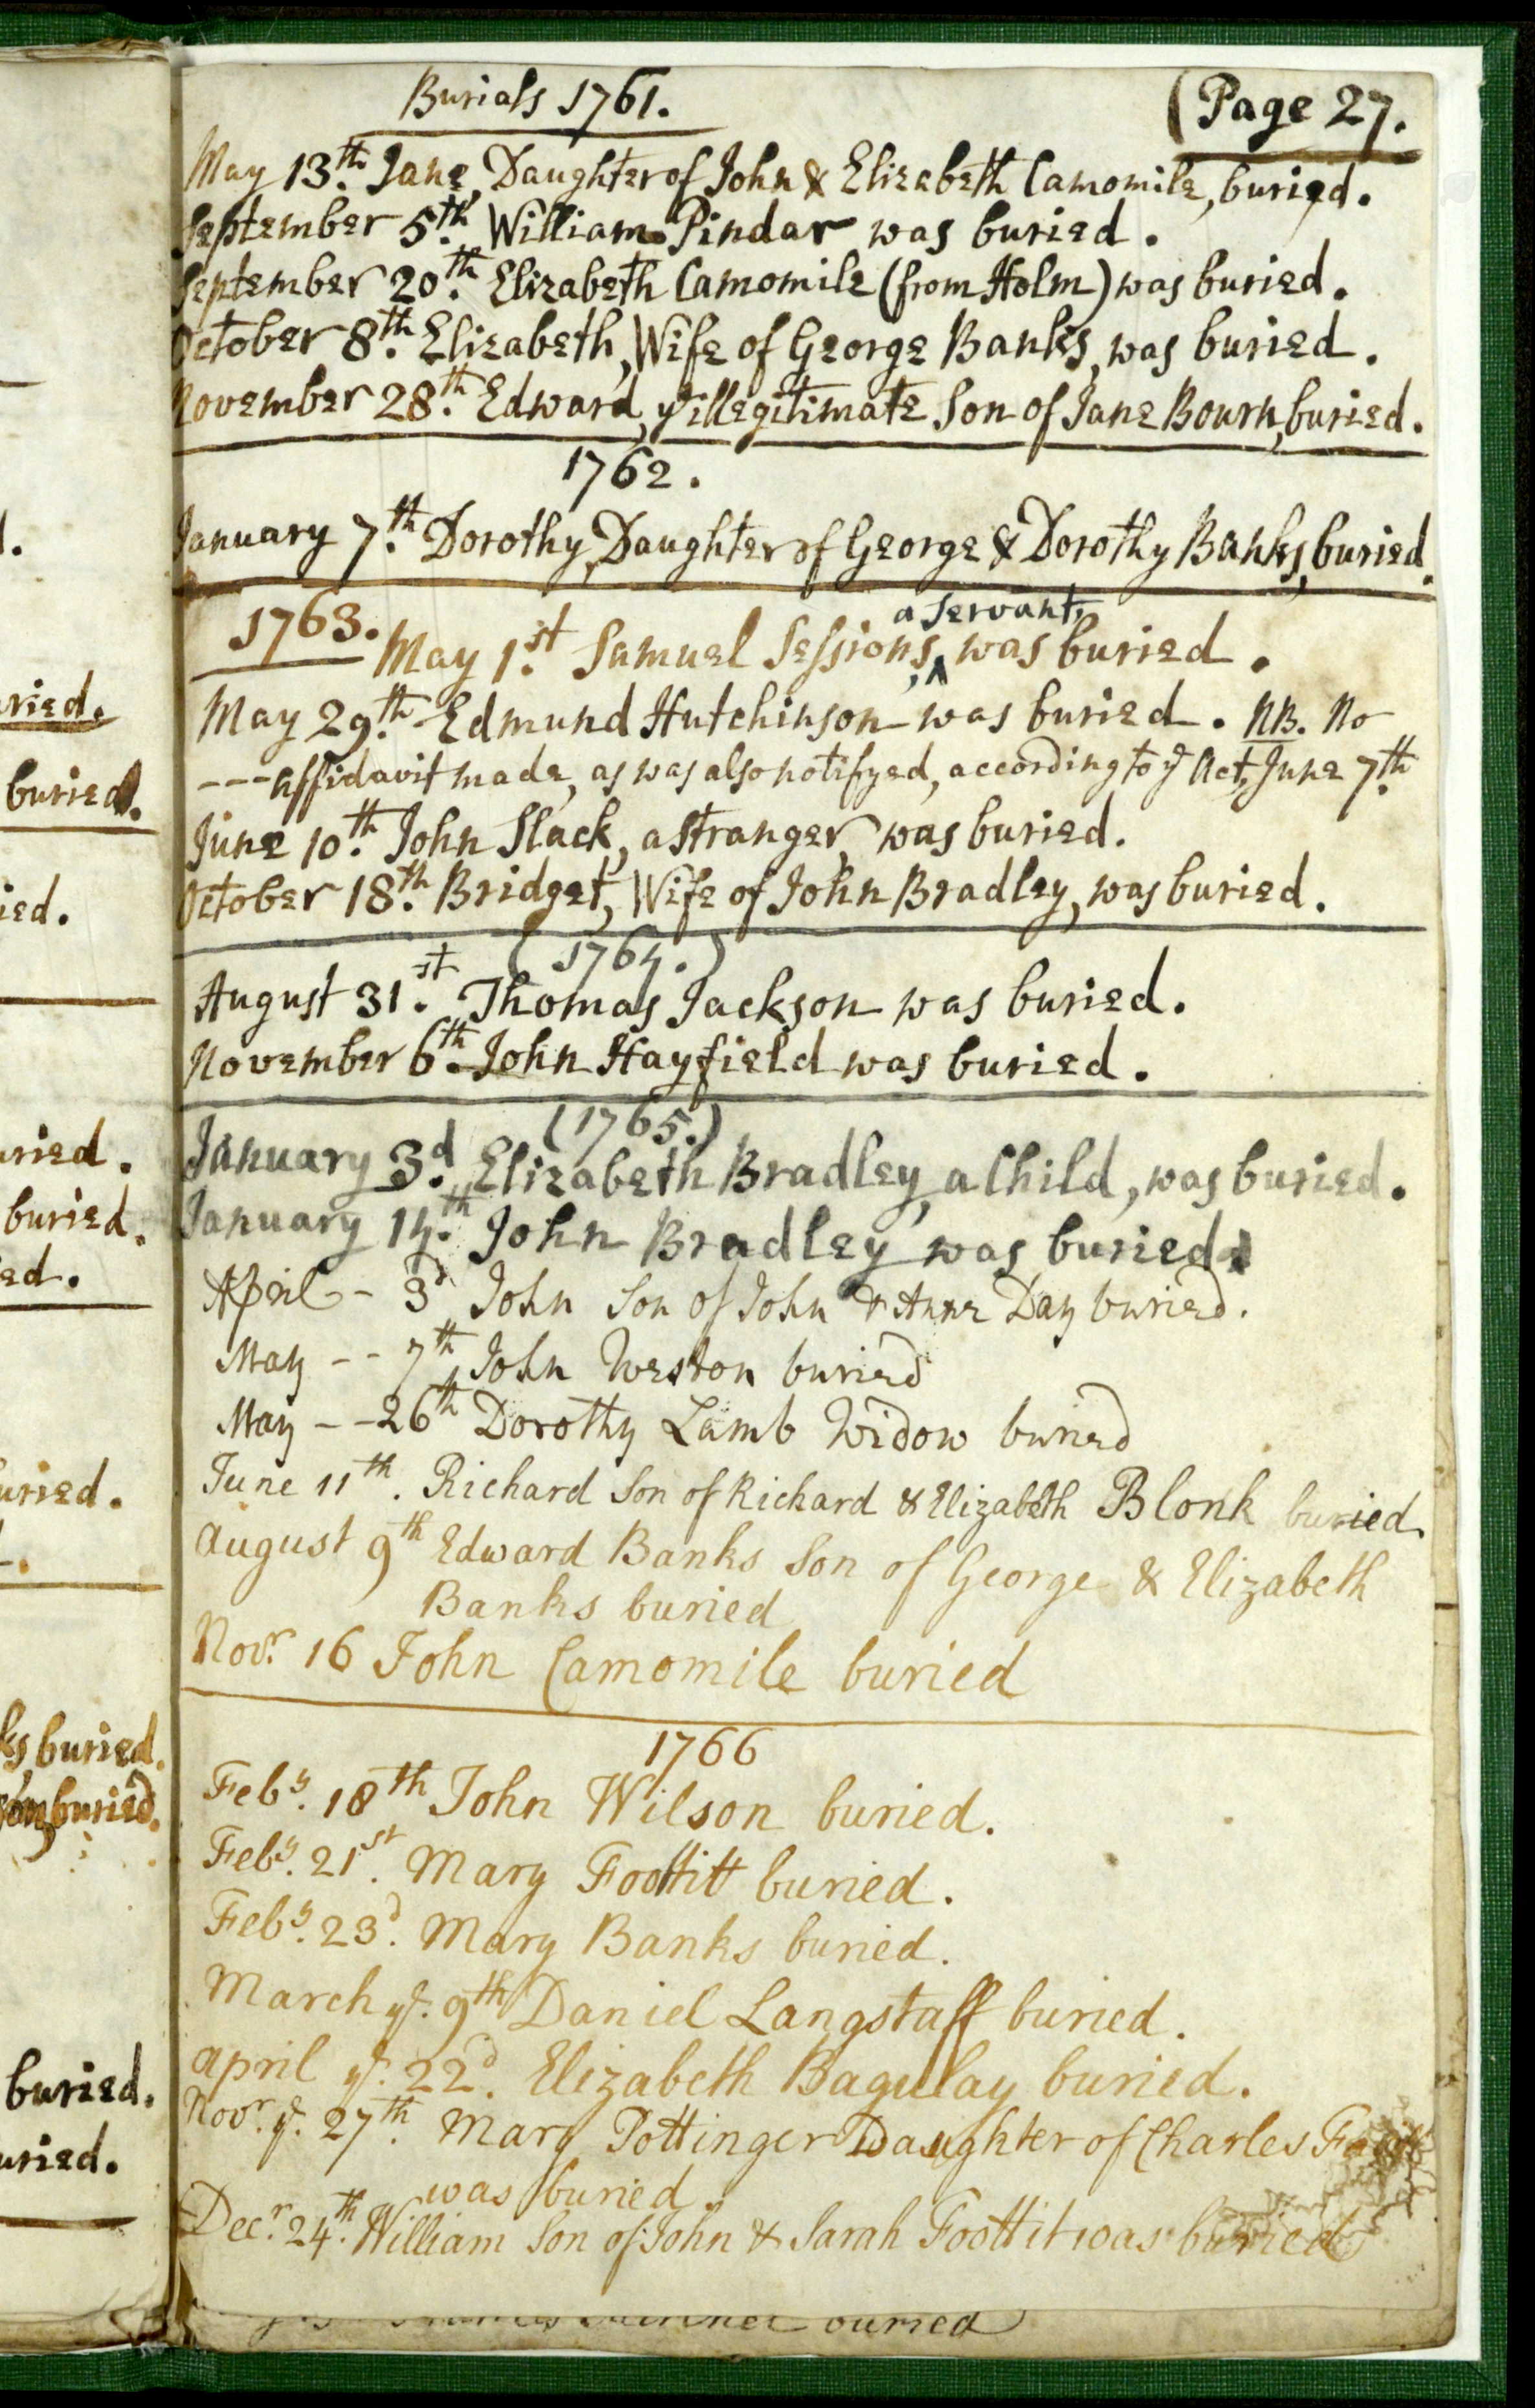 Burials 1761.
(Page 27.
May 13.th Jane, Daughter of John & Elizabeth Camomile, buried.
September 5.th William Pindar was buried.
September 20.th Elizabeth Camomile (from Holm) was buried.
October 8.th Elizabeth, Wife of George Banks, was buried.
November 28.th Edward, ye illegitimate Son of Jane Bourn, buried.
1762.
January 7.th Dorothy, Daughter of George & Dorothy Banks, buried.
1763. May 1.st Samuel Sessions, a Servant, was buried.
May 29.th Edmund Hutchinson was buried. NB. No
--- affidavit made, as was also notifyed, according to ye Act, June 7.th
June 10.th John Slack, a Stranger, was buried.
October 18.th Bridget, Wife of John Bradley, was buried.
(1764.)
August 31.st Thomas Jackson was buried.
November 6.th John Hayfield was buried.
(1765.)
January 3.d Elizabeth Bradley, a Child, was buried.
January 14.th John Bradley was buried.
April - 3d John Son of John & Anne Day buried.
May -- 7th John Weston buried
May -- 26th Dorothy Lamb Widow buried
June 11th. Richard Son of Richard & Elizabeth Blonk buried.
August 9th Edward Banks Son of George & Elizabeth
Banks buried
Novr. 16 John Camomile buried
1766
Feby. 18th John Wilson buried.
Feby. 21st. Mary Foottitt buried.
Feby. 23d. Mary Banks buried.
March ye. 9th Daniel Langstaff buried.
April ye. 22d. Elizabeth Bagulay buried.
Novr. ye. 27th. Mary Pottinger Daughter of Charles
was buried.
Decr. 24th. William Son of John & Sarah Foottit was buried
buried
ried.
buried.
ied.
uried.
buried.
ed.
uried.
ks, buried.
buried.
buried.
uried.